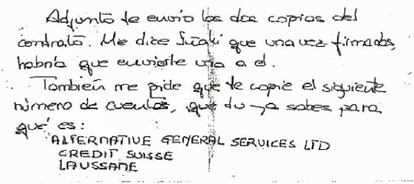 Adjunto te envío las dos copias del
contrato. Me dice Iñaki que una vez firmados,
habría que enviarle una a el.
También me pide que te copie el siguiente
número de cuentas, que tu ya sabes para
qué es:
ALTERNATIVE GENERAL SERVICES LTD
CREDIT SUISSE
LAUSSANE